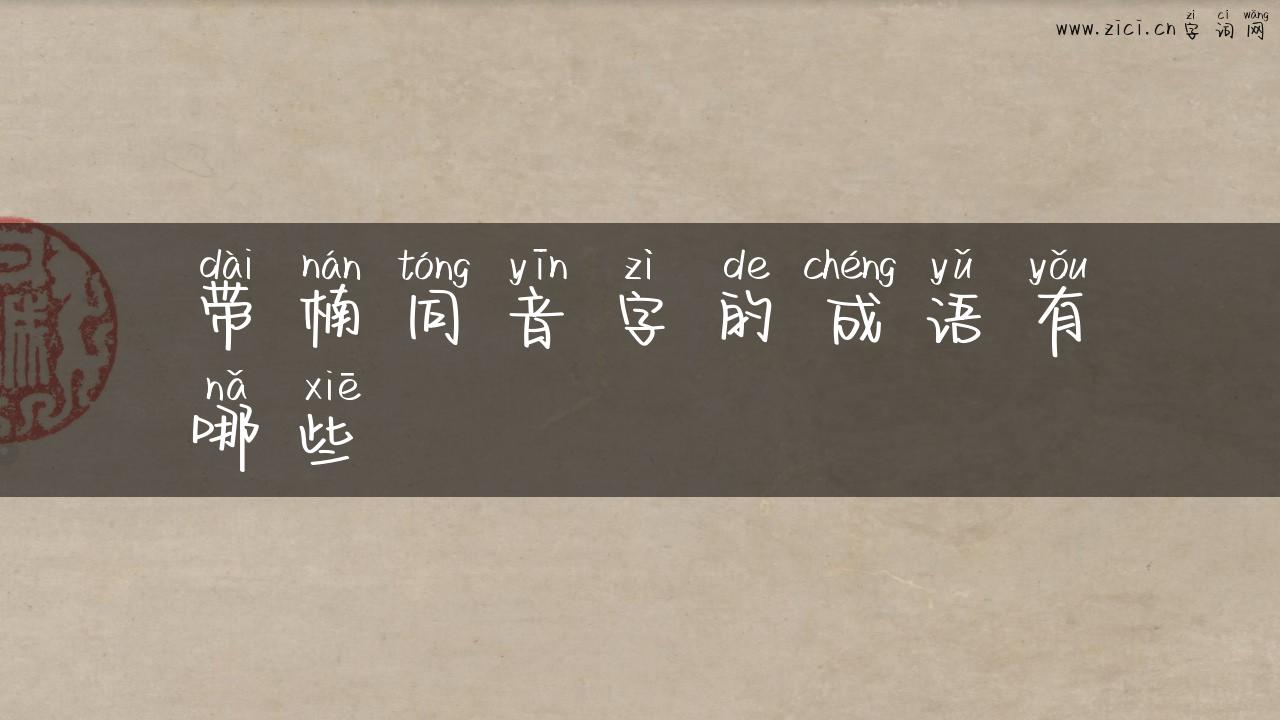 zì cí wǎng
www.zici.cn 字词网
dài nán tóng yīn zì de chéng yǔ yǒu
带楠同音字的成语有
nǎ xiē
哪些